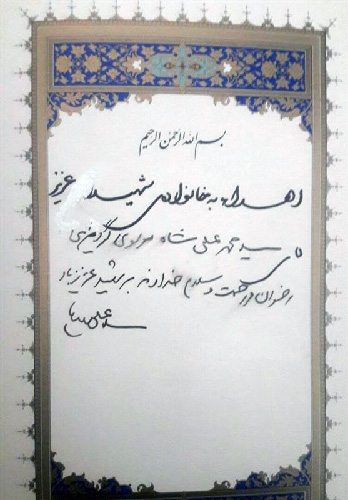 بسم الله الرحمن الرحیم
اهداء به خانواده‌ی شهید عزیز
سید محمد علی شاه مرادی
رضوان و رحمت و سلام خداوند بر شهید عزیز باد
سید علی